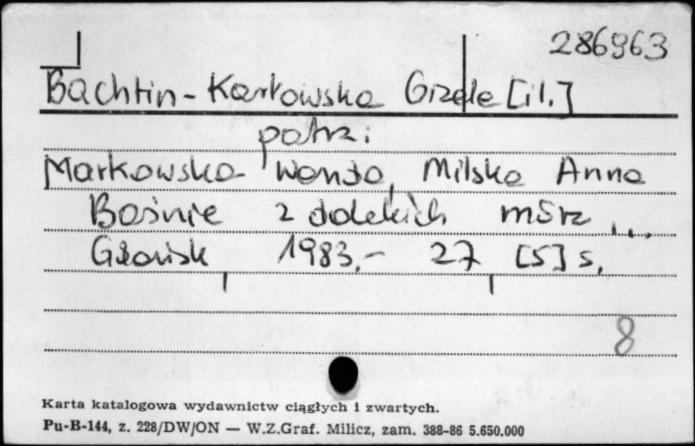 286963
Bachtin-Karłowska Gizela [il.]
patrz:
Markowska Wanda, Milska Anna
Baśnie z dalekich mórz ...
Gdańsk 1983.- 27 [5] s.
8
Karta katalogowa wydawnictw ciągłych i zwartych.
Pu-B-144, z. 228/DW/ON — W.Z.Graf. Milicz, zam. 388-86 5.650.000